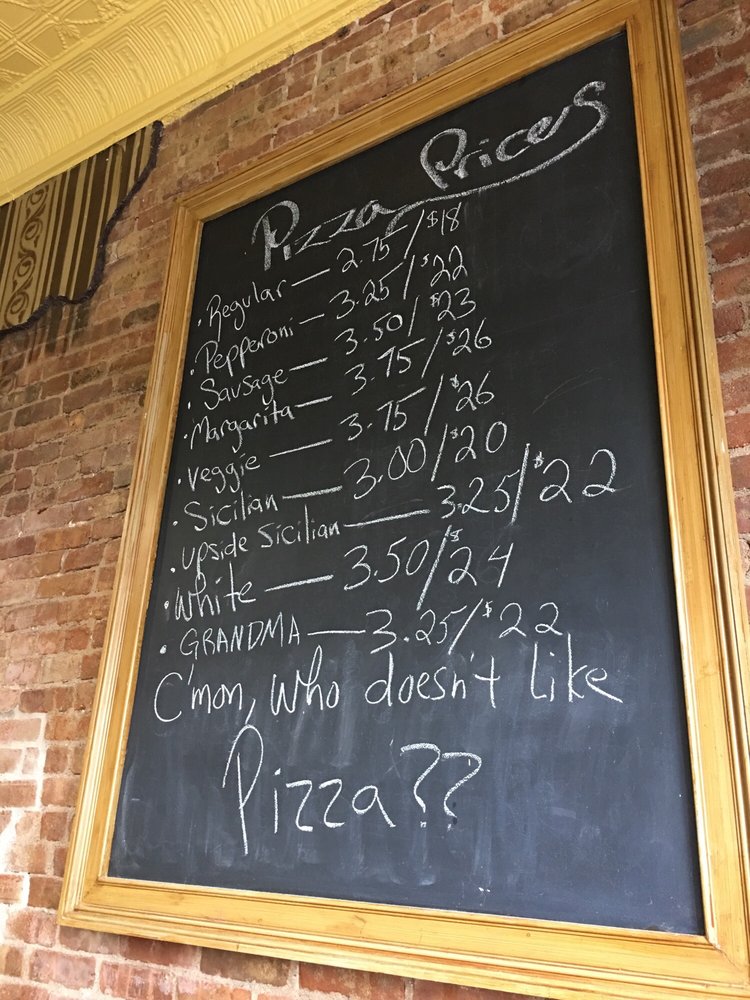 Pizza Prices
· Regular — 2.75/$18
· Pepperoni — 3.25/$22
· Sausage — 3.50/$23
· Margarita — 3.75/$26
· veggie — 3.75/$26
· Sicilian — 3.00/$20
· upside sicilian — 3.25/$22
· White — 3.50/$24
· GRANDMA — 3.25/$22
C'mon, who doesn't like
Pizza??